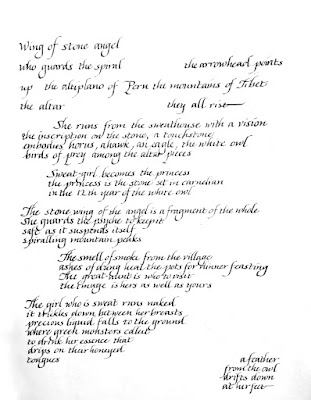 Wing of stone angel
who guards the spiral the arrowhead points
up the altiplano of Peru the mountains of Tibet
the altar they all rise
She runs from the sweathouse with a vision
the inscription on the stone, a touchstone
embodies horus, a hawk, an eagle, the white owl
birds of prey among the altar pieces
Sweat-girl becomes the princess
the princess is the stone set in carnelian
in the 12th year of the white owl
The stone wing of the angel is a fragment of the whole
She guards the psyche to keep it
safe as it suspends itself
spiralling mountain peaks
The smell of smoke from the village
ashes of dung heat the pots for dinner feasting
The great hunt is who to visit
the image is hers as well as yours
The girl who is sweat runs naked
it trickles down between her breasts
precious liquid falls to the ground
where greek monsters called
to drink her essence that
drips on their honeyed
tongues
a feather
from the owl
drifts down
at her feet